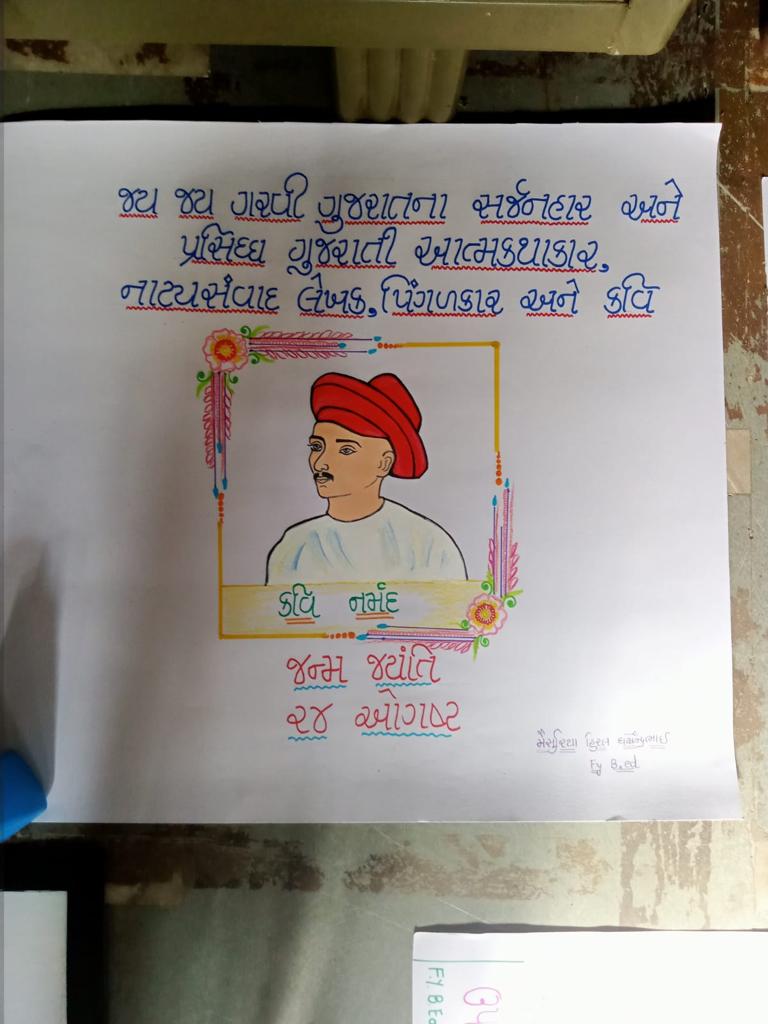 જય જય ગરવી ગુજરાતના સર્જનહાર અને
પ્રસિધ્ધ ગુજરાતી આત્મકથાકાર,
નાટ્યસંવાદ લેખક,પિંગળકાર અને કવિ
કવિ નર્મદ
જન્મ જયંતિ
૨૪ ઓગષ્ટ
હિરલ
Fy B.ed
F.Y. B Ed